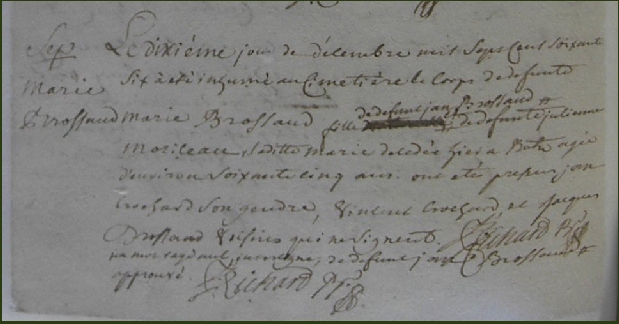 Sep. Le dixiéme jour de décembre mil sept cent soixante
Marie six a été inhumé au cimetiére le corps de defunte
Brossaud Marie Brossaud fille de defunt jan Brossaud + & de defunte julienne
Moriceau, laditte Marie decedée hier a Batz agée
d'environ soixante cinq ans. ont eté presens jan
Crochard son gendre, Vincent Crochard et Jacques
Brossaud & autres qui ne signent. Richard Ptre
un mot rayé nul, de defunt jan Brossaud +
approuvé. Richard Ptre